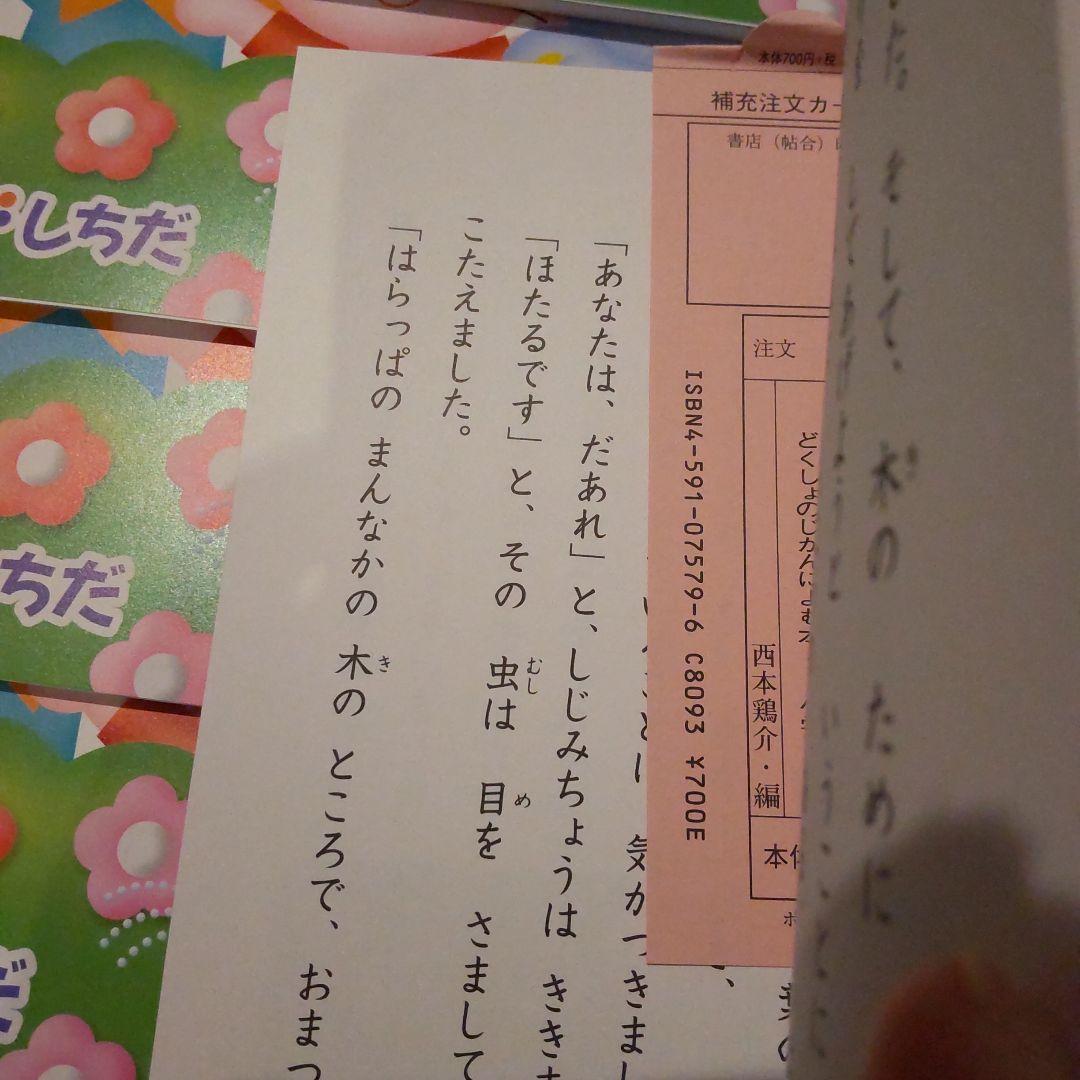 しちだ
ちだ
だ
本体700円+税
補充注文カー
書店(帖合)
注文
どくしょのじかんによむ本
西本鶏介・編
本体
ISBN4-591-07579-6 C8093 ¥700E
気がつきまし
「あなたは、だあれ」と、しじみちょうは きき
「ほたるです」と、その 虫は 目を さまして
むし
め
こたえました。
「はらっぱの まんなかの 木の ところで、おまつ
き
そして、木の ために